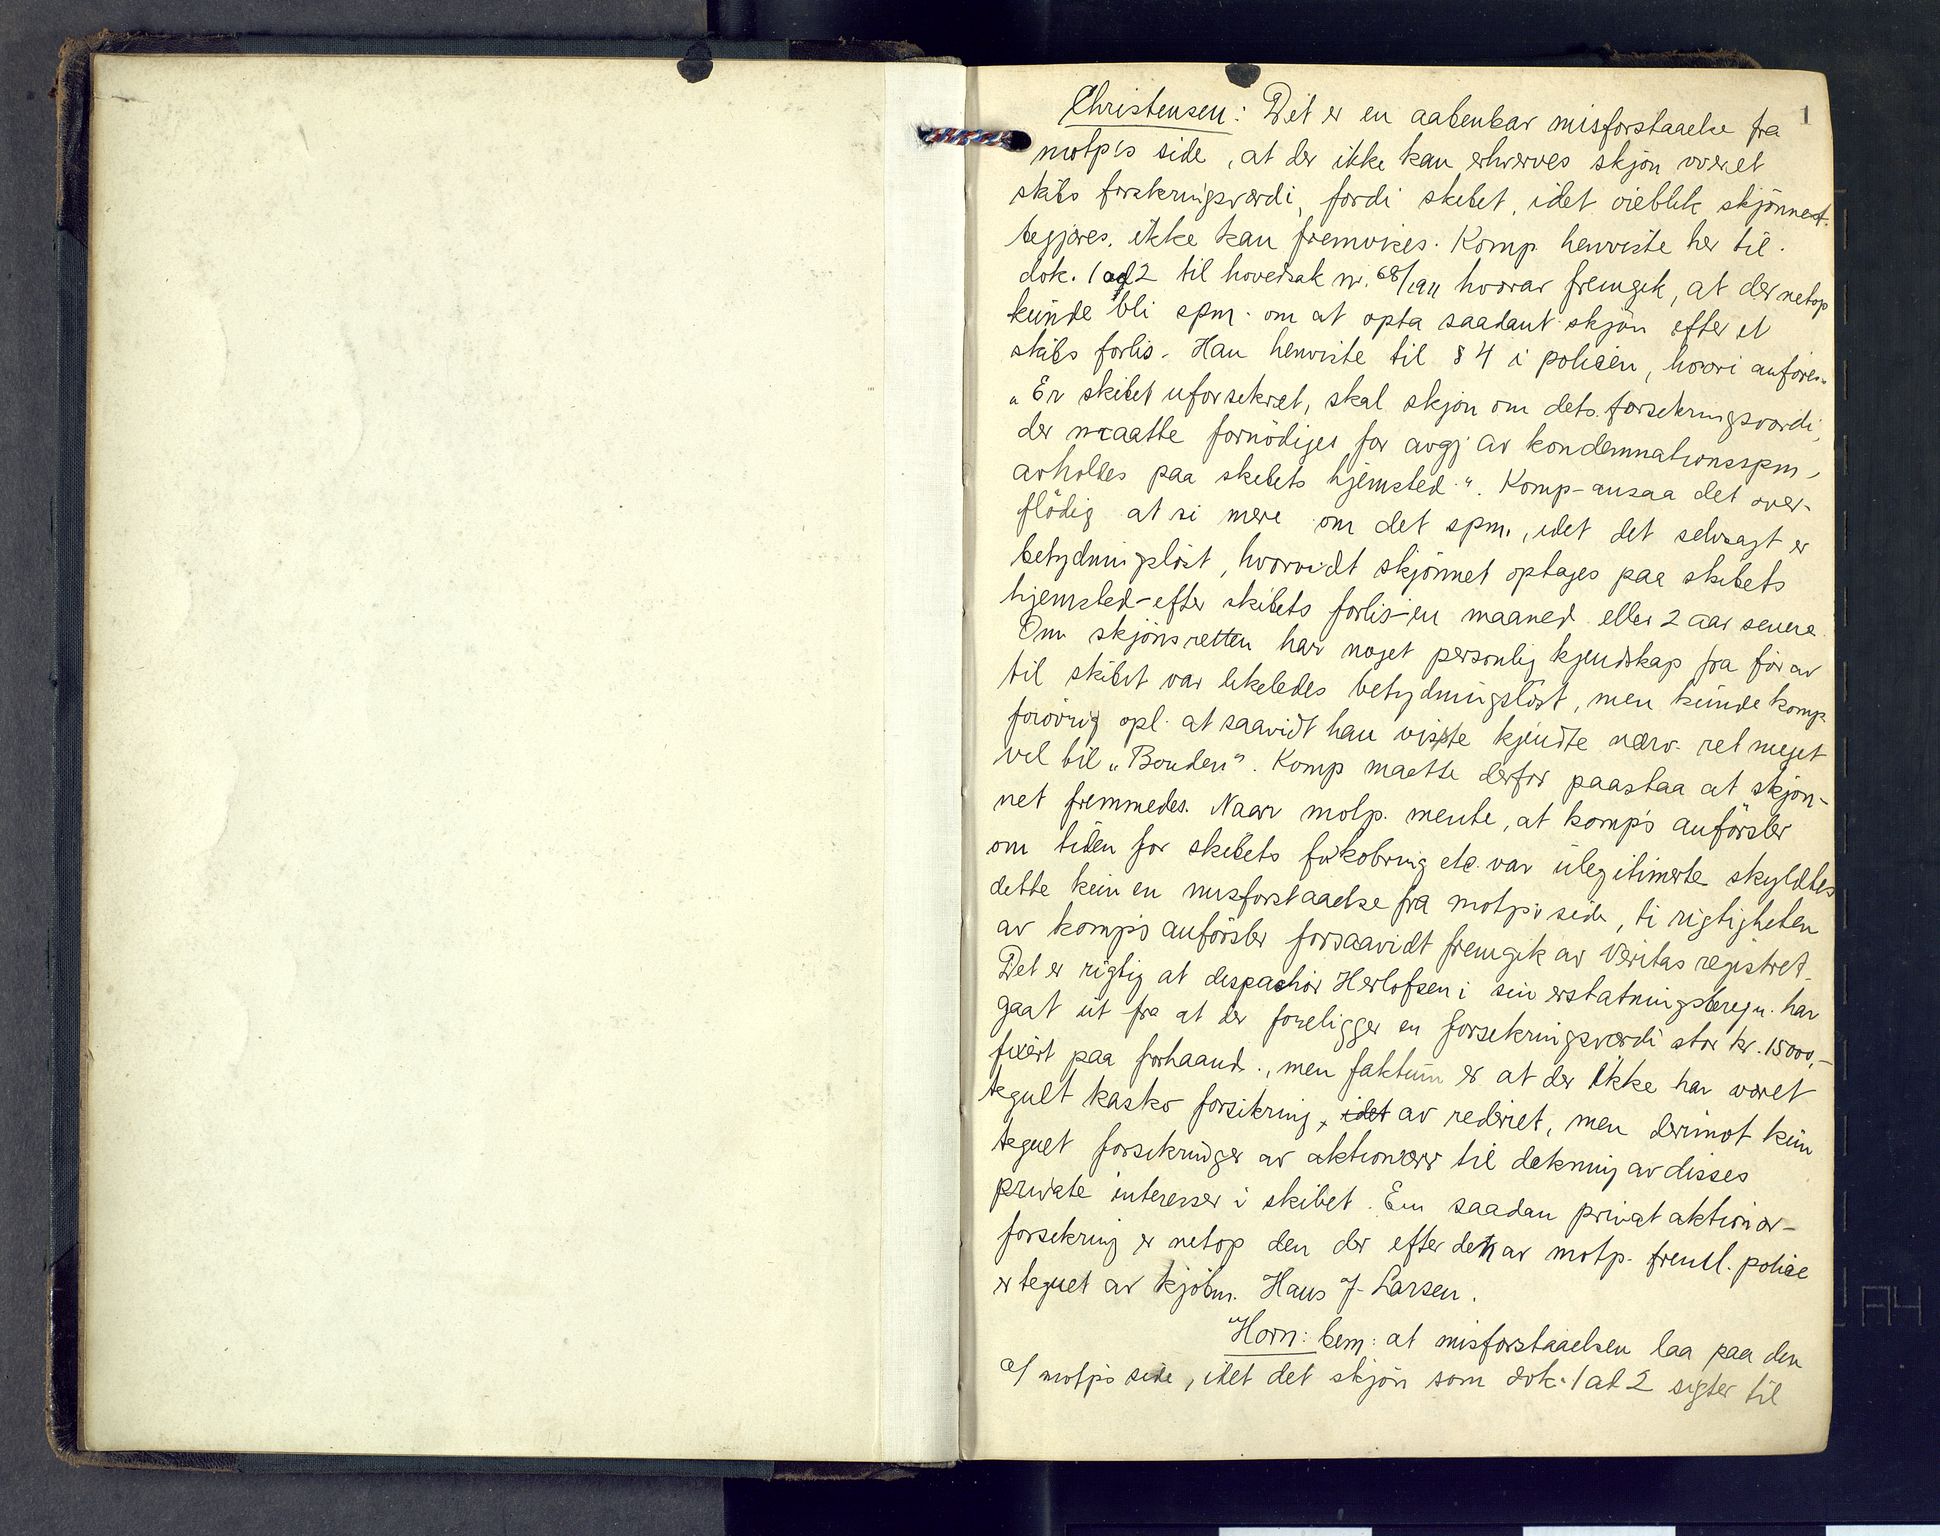 1
Christensen: Det er en aabenbar misforstaaelse fra
motp's side, at der ikke kan erhverves skjøn over et
skibs forsikringsværdi, fordi skibet, idet øieblik skjønnet
begjæres, ikke kan fremvises. Komp. henviste her til
dok. 1 ad 2 til hovedsak nr. 68/1911 hvorav fremgik, at der netop
kunde bli spm. om at opta saadant skjøn efter et
skibs forlis. Han henviste til § 4 i polisen, hvori anføres
"Er skibet uforsikret, skal skjøn om dets forsikringsværdi,
der maatte fornødiges for avgj. av kondemnationsspm,
avholdes paa skibets hjemsted". Komp. ansaa det over-
flødig at si mere om det spm., idet det selvsagt er
betydningsløst, hvorvidt skjønnet optages paa skibets
hjemsted - efter skibets forlis - en maaned eller 2 aar senere.
Om skjønsretten har noget personlig kjendskap fra før av
til skibet var likeledes betydningsløst, men kunde komp.
forøvrig opl. at saavidt han visste kjendte nærv. ret meget
vel til "Bonden". Komp maatte derfor paastaa at skjøn-
net fremmedes. Naar motp. mente, at komp's anførsler
om tiden for skibets forkobring etc. var ulegitimerte skyldtes
dette kun en misforstaaelse fra motp's side, ti rigtigheten
av komp's anførsler forsaavidt fremgik av Veritas registret.
Det er rigtig at despachør Herlofsen i sin erstatningsberegn. har
gaat ut fra at der foreligger en forsikringsværdi stor kr. 15000,-
fixert paa forhaand., men faktum er at der ikke har været
tegnet kasko forsikring, idet av rederiet, men derimot kun
tegnet forsikringer av aktionærer til dekning av disses
private interesser i skibet. En saadan privat aktionær-
forsikring er netop den der efter den av motp. freml. polise
er tegnet av kjøbm. Hans J. Larsen.
Horn: bem: at misforstaaelsen laa paa den
motp's side, idet det skjøn som dok. 1 ad 2 sigter til